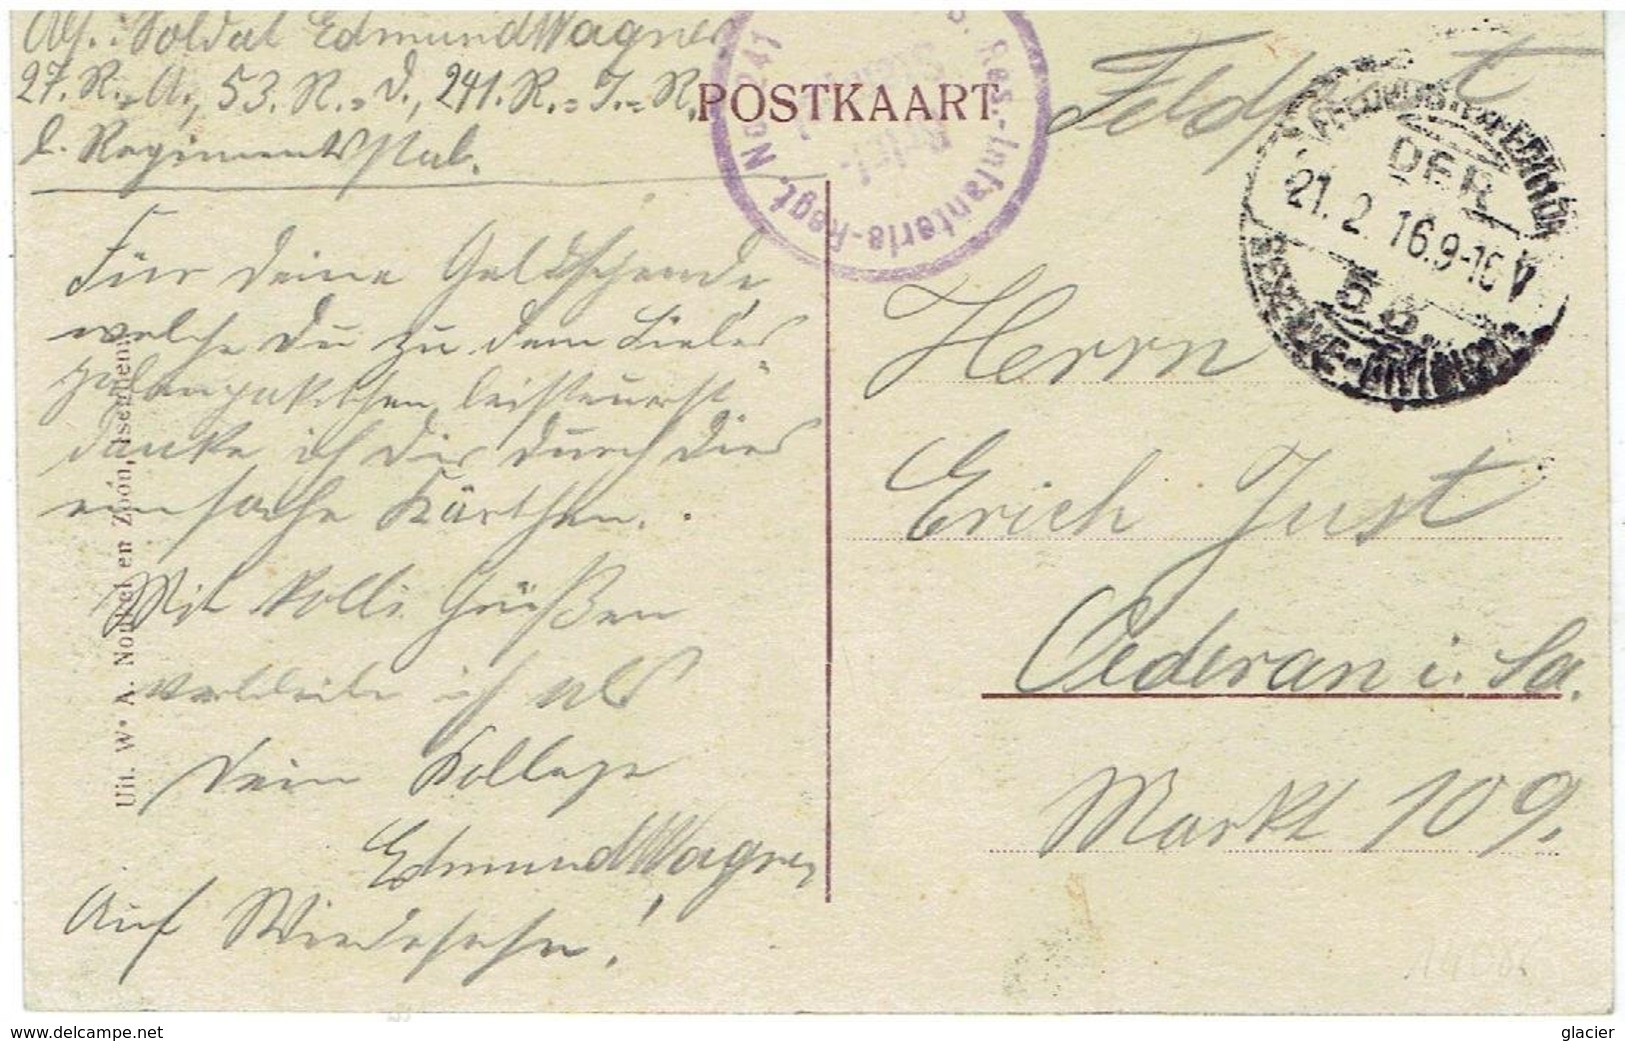 Abs.: Soldat Edmund Wagner
27. R.-A., 53. R.-D., 241. R.-I.-R.
b. Regimentsstab.
POSTKAART
Feldpost
Res.-Infanterie-Regt. No 241
DER
21. 2. 16. 9-10 V
53.
RESERVE-DIVISION
Für deine Geldspende,
welche du zu dem Liebes-
gabenpaketchen beisteuerst
danke ich dir durch dies
einfache Kärtchen.
Mit koll. Grüßen
verbleibe ich als
dein Kollege
Edmund Wagner
Auf Wiedersehn!
Herrn
Erich Just
Oederan i. Sa.
Markt 109.
Uit. Wᵉ A. Nonkel en Zoon, Iseghem.
www.delcampe.net
glacier